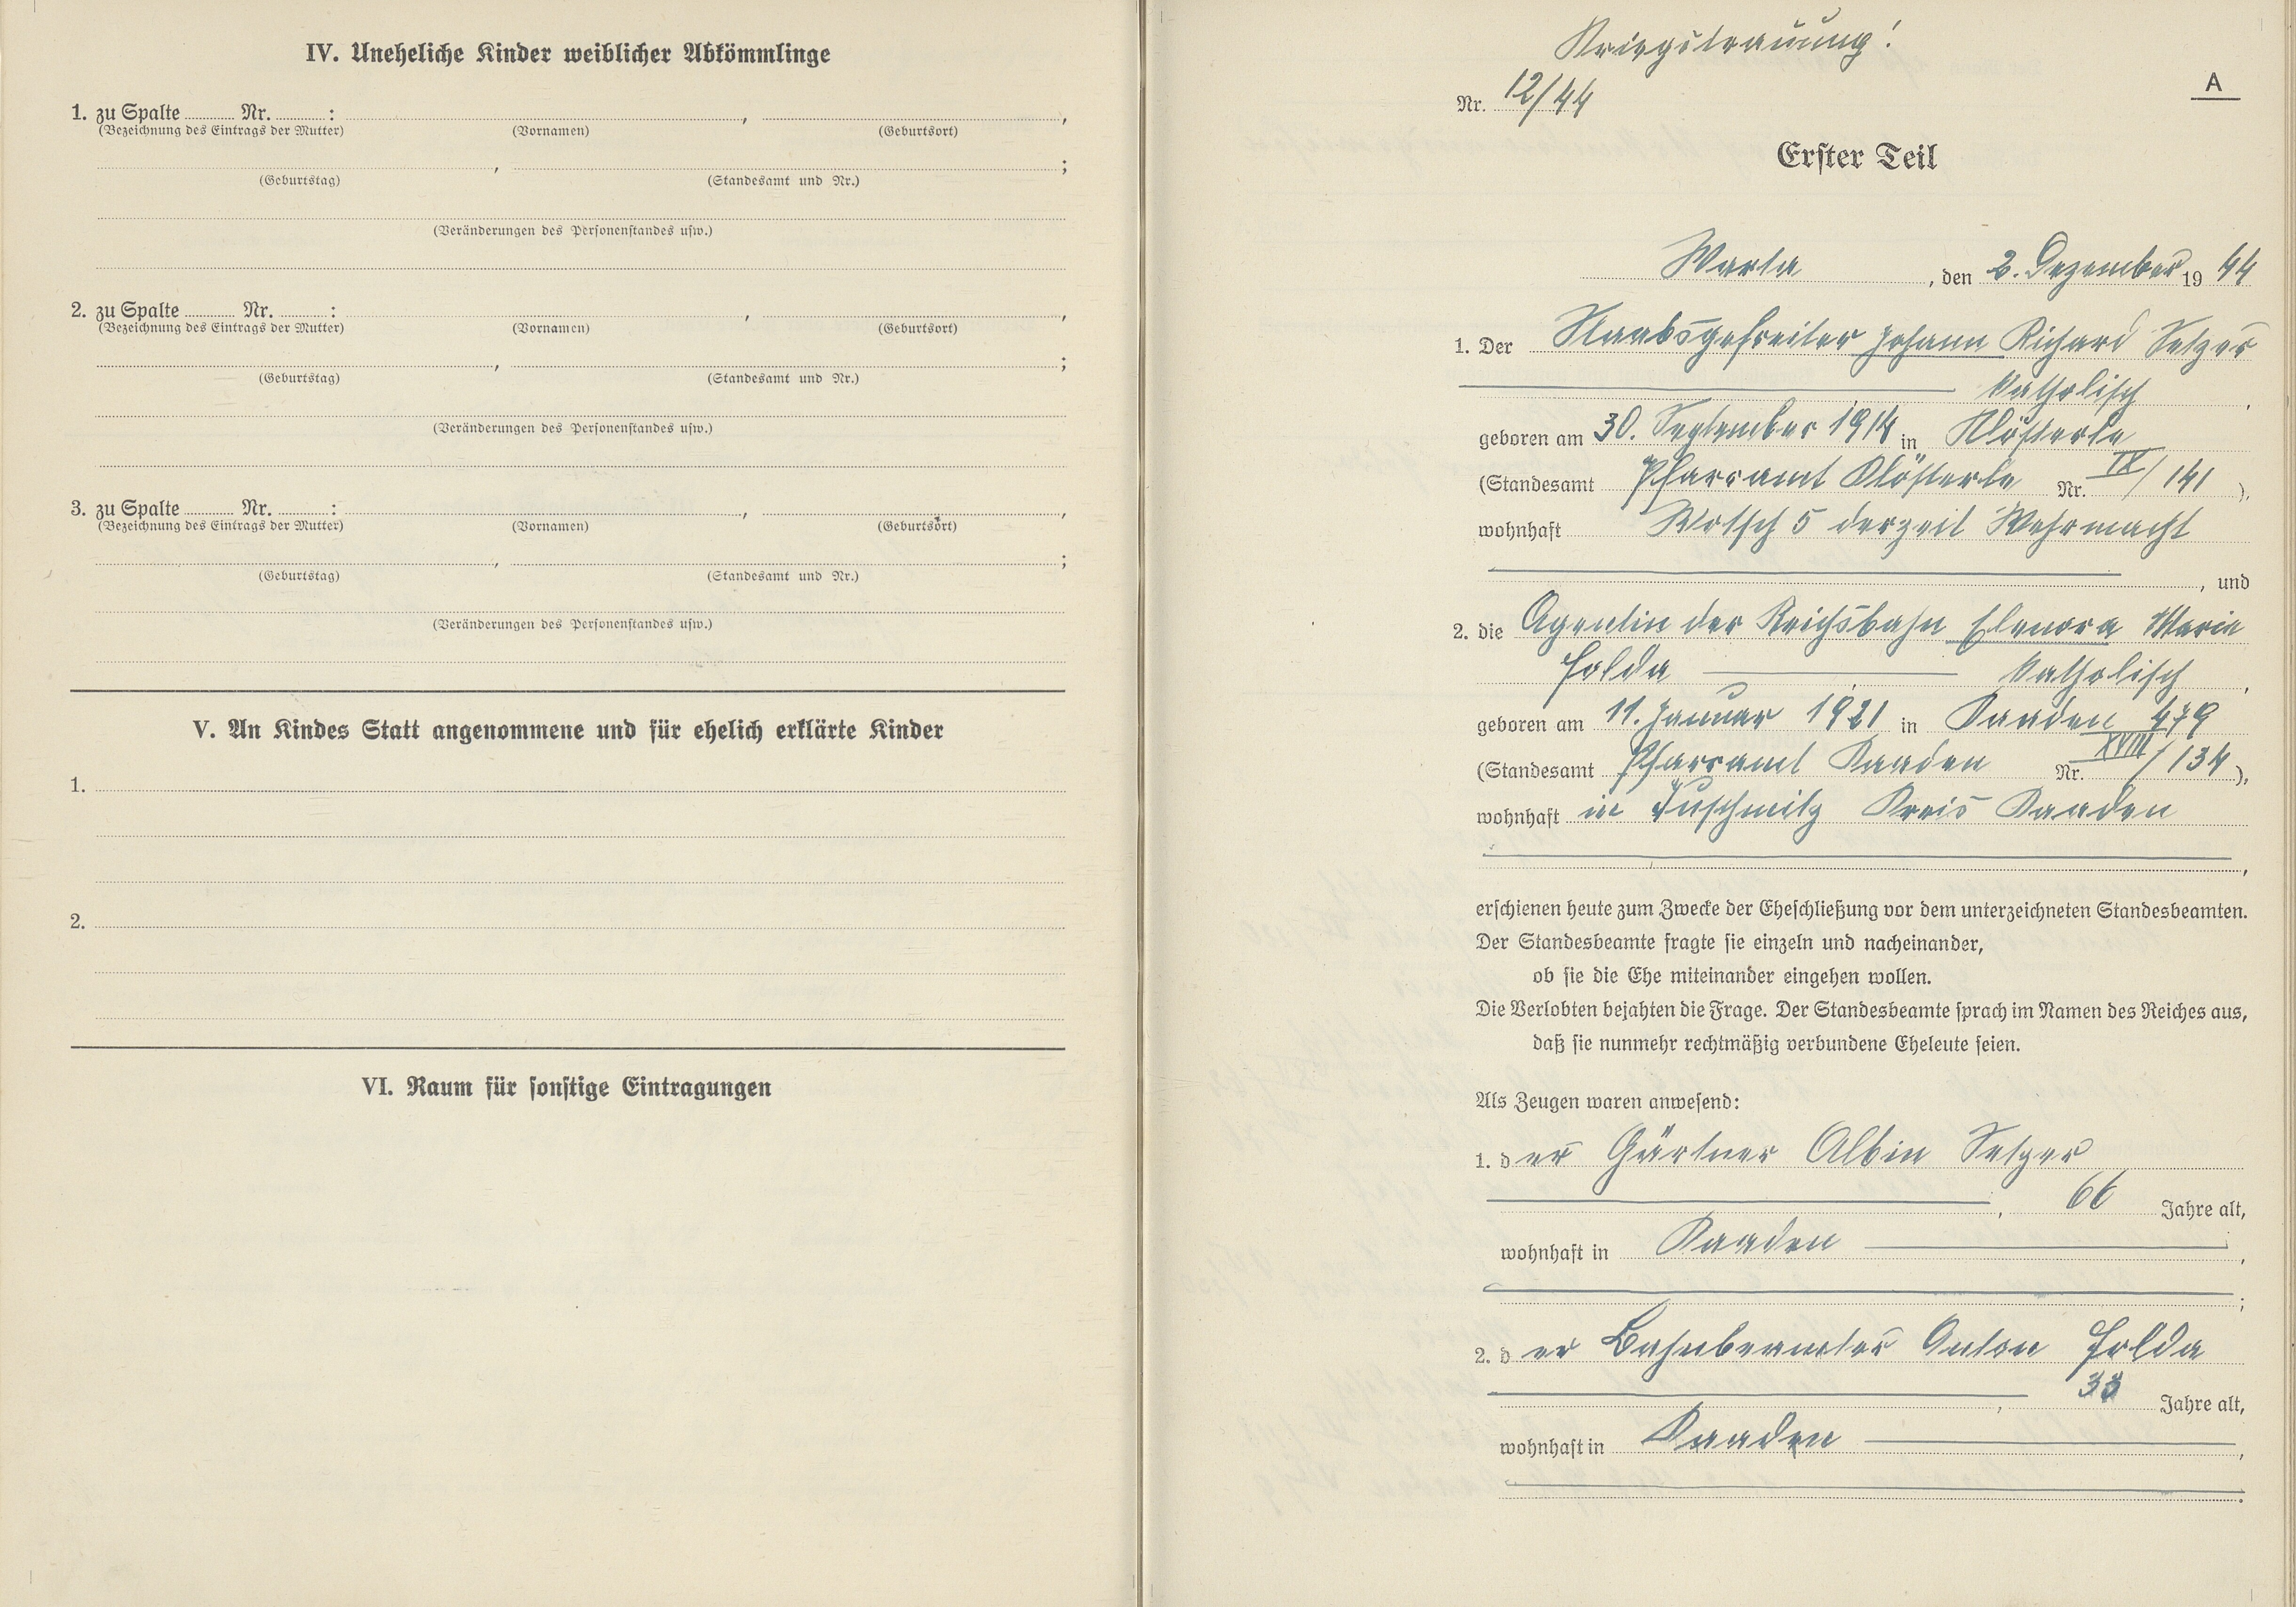 IV. Uneheliche Kinder weiblicher Abkömmlinge
1. zu Spalte Nr. : , ,
(Bezeichnung des Eintrags der Mutter) (Vornamen) (Geburtsort)
, ;
(Geburtstag) (Standesamt und Nr.)
(Veränderungen des Personenstandes usw.)
2. zu Spalte Nr. : , ,
(Bezeichnung des Eintrags der Mutter) (Vornamen) (Geburtsort)
, ;
(Geburtstag) (Standesamt und Nr.)
(Veränderungen des Personenstandes usw.)
3. zu Spalte Nr. : , ,
(Bezeichnung des Eintrags der Mutter) (Vornamen) (Geburtsort)
, ;
(Geburtstag) (Standesamt und Nr.)
(Veränderungen des Personenstandes usw.)
V. An Kindes Statt angenommene und für ehelich erklärte Kinder
1.
2.
VI. Raum für sonstige Eintragungen
Kriegstrauung!
A
Nr. 12/44
Erster Teil
Warta, den 2. Dezember 1944
1. Der Stabsgefreiter Johann Richard Setzer
katholisch,
geboren am 30. September 1914 in Klösterle
(Standesamt Pfarramt Klösterle Nr. IX/141),
wohnhaft Wotsch 5 derzeit Wehrmacht
, und
2. die Agentin der Reichsbahn Elenora Maria
Folda katholisch,
geboren am 11. Januar 1921 in Kaaden 479
(Standesamt Pfarramt Kaaden Nr. XVIII/134),
wohnhaft in Kreis Kaaden
,
erschienen heute zum Zwecke der Eheschließung vor dem unterzeichneten Standesbeamten.
Der Standesbeamte fragte sie einzeln und nacheinander,
ob sie die Ehe miteinander eingehen wollen.
Die Verlobten bejahten die Frage. Der Standesbeamte sprach im Namen des Reiches aus,
daß sie nunmehr rechtmäßig verbundene Eheleute seien.
Als Zeugen waren anwesend:
1. der Gärtner Albin Setzer
, 66 Jahre alt,
wohnhaft in Kaaden,
;
2. der Bahnbeamter Anton Folda
, 33 Jahre alt,
wohnhaft in Kaaden,
.